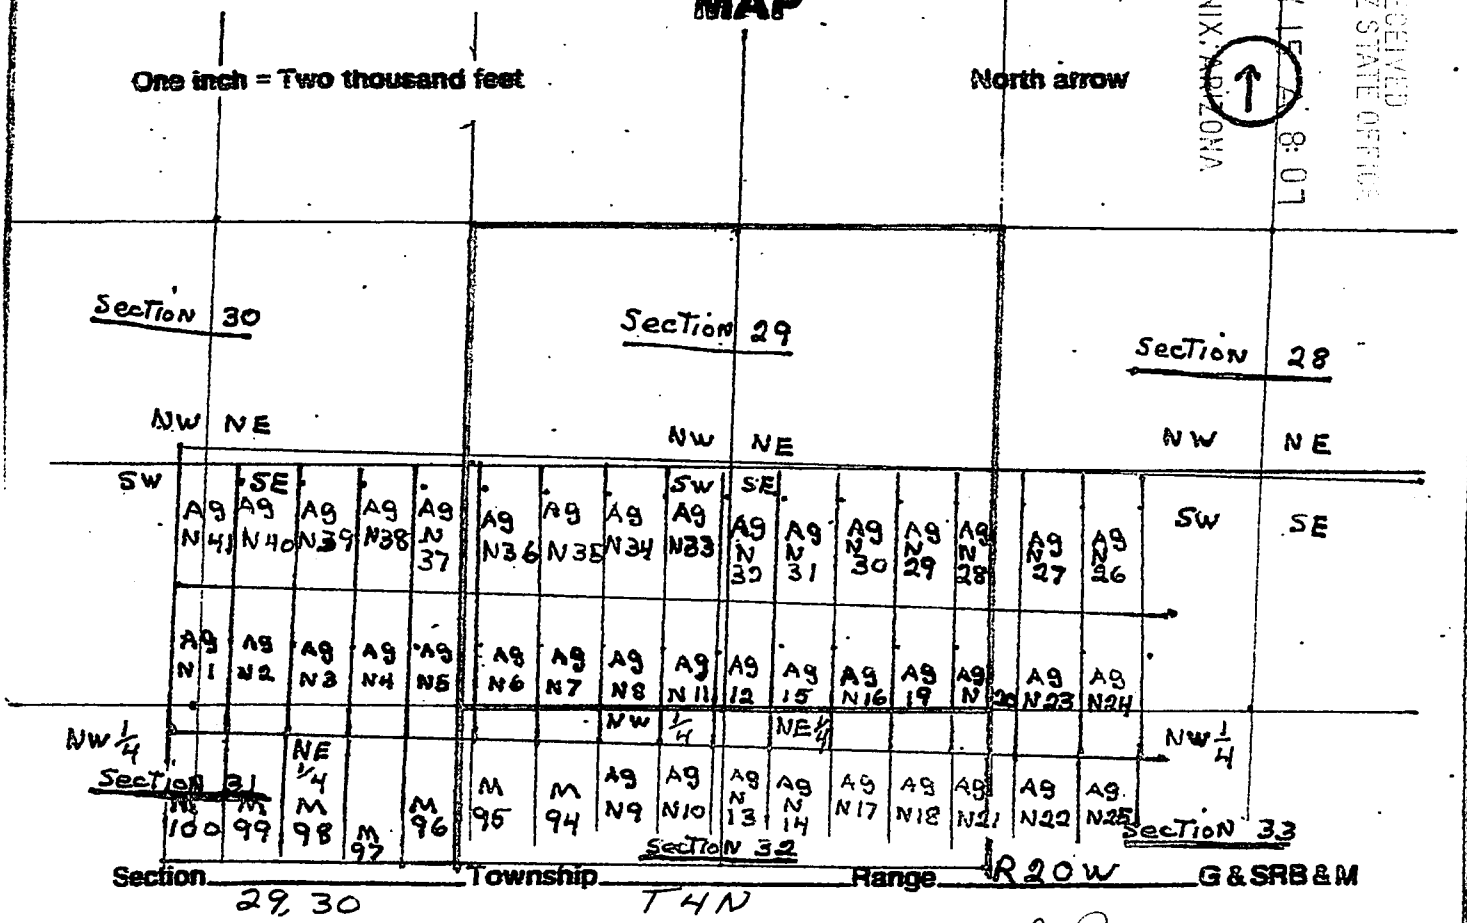 MAP
One inch = Two thousand feet
North arrow
RECEIVED
Z STATE OFFICE
8:07
NIX, ARIZONA
Section 30
Section 29
Section 28
NW NE
NW NE
NW NE
SW SE
SW SE
SW SE
Ag N41 Ag N40 Ag N39 Ag N38 Ag N 37 Ag N36 Ag N35 Ag N34 Ag N33 Ag N 32 Ag N 31 Ag N 30 Ag N 29 Ag N 28 Ag N 27 Ag N 26
Ag N1 Ag N2 Ag N3 Ag N4 Ag N5 Ag N6 Ag N7 Ag N8 Ag N11 Ag 12 Ag 15 Ag N16 Ag 19 Ag N 20 Ag N23 Ag N24
NW 1/4 NE 1/4 NW 1/4 NE 1/4 NW 1/4
Section 31
M 100 M 99 M 98 M 97 M 96 M 95 M 94 Ag N9 Ag N10 Ag N 13 Ag N 14 Ag N17 Ag N18 Ag N21 Ag N22 Ag N25
Section 32
Section 33
Section 29, 30 Township T4N Range R20W G & SRB & M